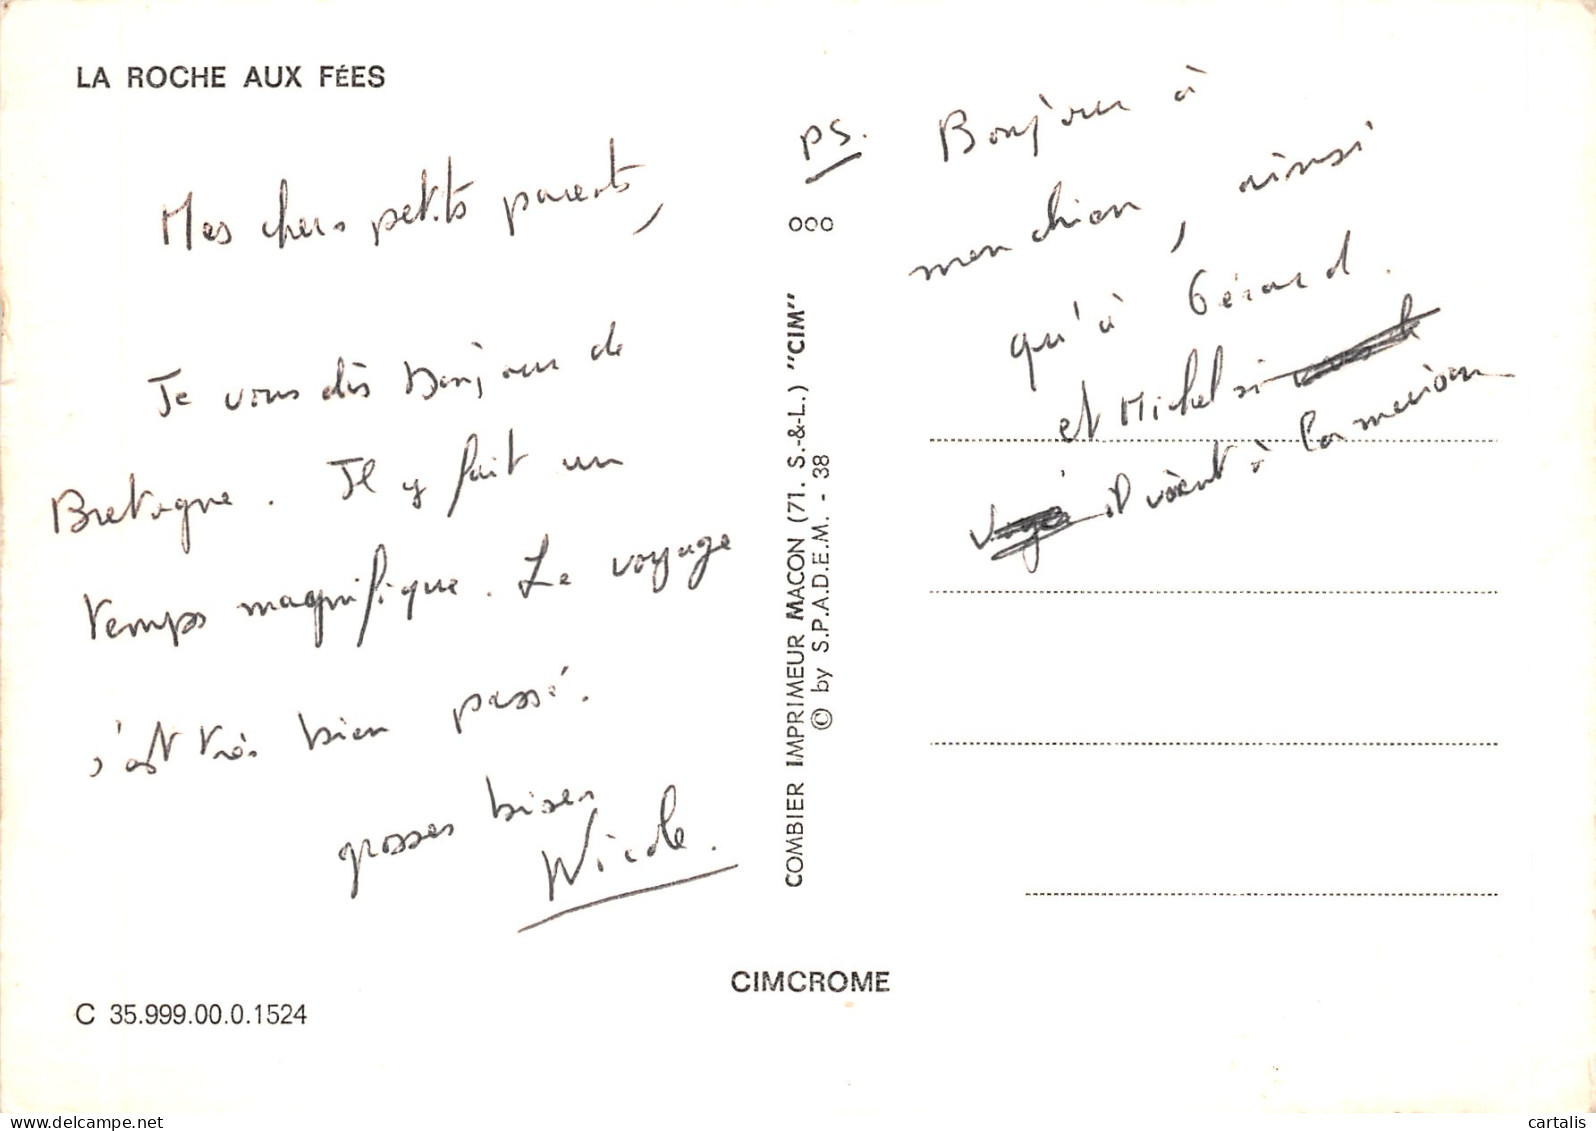 LA ROCHE AUX FÉES
Mes chers petits parents,
Je vous dis bonjour de
Bretagne. Il y fait un
temps magnifique. Le voyage
s'est très bien passé.
grosses bises
Nicole.
PS. Bonjour à
mon chien, ainsi
qu'à Gérard.
et Michel si
il vient à la maison
COMBIER IMPRIMEUR MACON (71. S.-&-L.) "CIM"
© by S.P.A.D.E.M. - 38
CIMCROME
C 35.999.00.0.1524
delcampe.net
cartalis